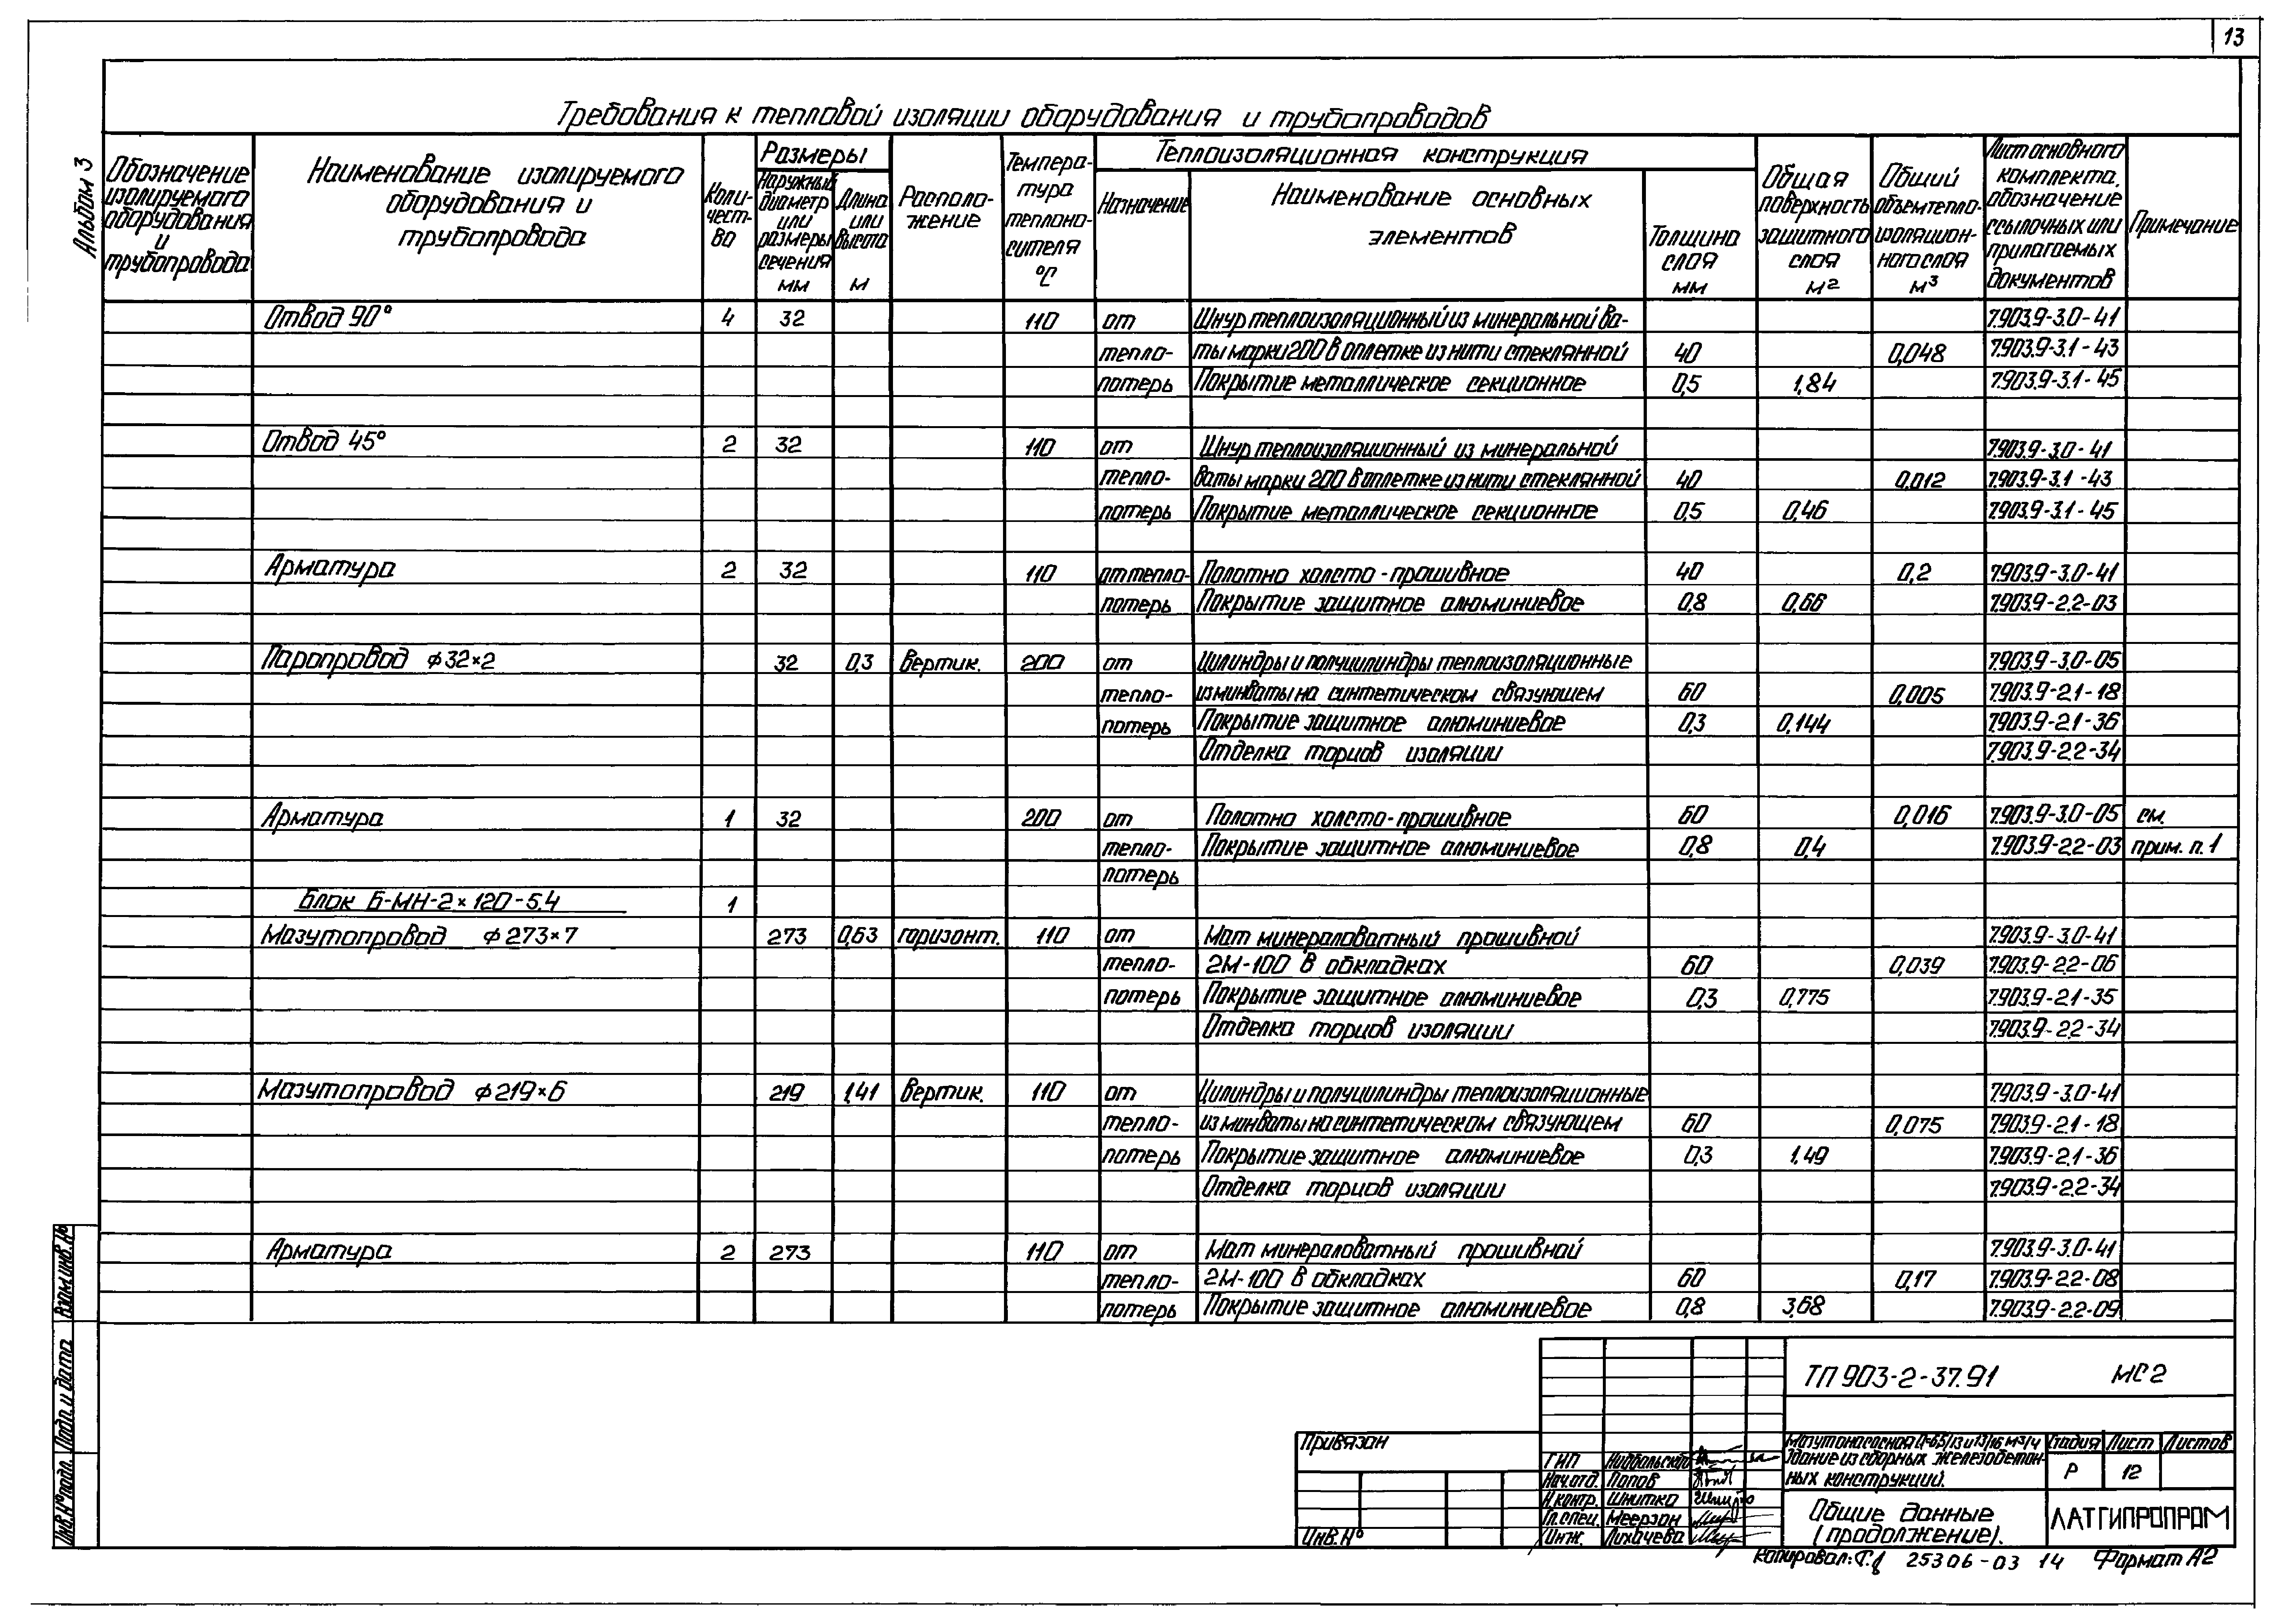 13
Альбом 3
Требования к тепловой изоляции оборудования и трубопроводов
Обозначение изолируемого оборудования и трубопровода
Наименование изолируемого оборудования и трубопровода
Коли-чест-во
Размеры
Наружный диаметр или размеры сечения мм
Длина или высота м
Располо-жение
Темпера-тура теплоно-сителя °С
Теплоизоляционная конструкция
Назначение
Наименование основных элементов
Толщина слоя мм
Общая поверхность защитного слоя м²
Общий объем тепло-изоляцион-ного слоя м³
Лист основного комплекта, обозначение ссылочных или прилагаемых документов
Примечание
Отвод 90° 4 32 110 от Шнур теплоизоляционный из минеральной ва- 7.903.9-3.0-41
тепло- ты марки 200 в оплетке из нити стеклянной 40 0,048 7.903.9-3.1-43
потерь Покрытие металлическое секционное 0,5 1,84 7.903.9-3.1-45
Отвод 45° 2 32 110 от Шнур теплоизоляционный из минеральной 7.903.9-3.0-41
тепло- ваты марки 200 в оплетке из нити стеклянной 40 0,012 7.903.9-3.1-43
потерь Покрытие металлическое секционное 0,5 0,46 7.903.9-3.1-45
Арматура 2 32 110 от тепло- Полотно холсто-прошивное 40 0,2 7.903.9-3.0-41
потерь Покрытие защитное алюминиевое 0,8 0,66 7.903.9-2.2-03
Паропровод ф32×2 32 0,3 вертик. 200 от Цилиндры и полуцилиндры теплоизоляционные 7.903.9-3.0-05
тепло- из минваты на синтетическом связующем 60 0,005 7.903.9-2.1-18
потерь Покрытие защитное алюминиевое 0,3 0,144 7.903.9-2.1-36
Отделка торцов изоляции 7.903.9-2.2-34
Арматура 1 32 200 от Полотно холсто-прошивное 60 0,016 7.903.9-3.0-05 см.
тепло- Покрытие защитное алюминиевое 0,8 0,4 7.903.9-2.2-03 прим. п.1
потерь
Блок Б-МН-2×120-5.4 1
Мазутопровод ф273×7 273 0,63 горизонт. 110 от Мат минераловатный прошивной 7.903.9-3.0-41
тепло- 2М-100 в обкладках 60 0,039 7.903.9-2.2-06
потерь Покрытие защитное алюминиевое 0,3 0,775 7.903.9-2.1-35
Отделка торцов изоляции 7.903.9-2.2-34
Мазутопровод ф219×6 219 1,41 вертик. 110 от Цилиндры и полуцилиндры теплоизоляционные 7.903.9-3.0-41
тепло- из минваты на синтетическом связующем 60 0,075 7.903.9-2.1-18
потерь Покрытие защитное алюминиевое 0,3 1,49 7.903.9-2.1-36
Отделка торцов изоляции 7.903.9-2.2-34
Арматура 2 273 110 от Мат минераловатный прошивной 7.903.9-3.0-41
тепло- 2М-100 в обкладках 60 0,17 7.903.9-2.2-08
потерь Покрытие защитное алюминиевое 0,8 3,68 7.903.9-2.2-09
Взам.инв.№
Подп. и дата
Инв.№ подл.
Привязан
Инв.№
ТП 903-2-37.91 МС2
ГИП
Нач.отд. Попов
Н.контр. Шнитко
Гл.спец. Меерзон
Инж. Лихачева
Мазутонасосная Q=6,5/13 и 13/16 м³/ч
Здание из сборных железобетон-
ных конструкций.
Стадия Лист Листов
Р 12
Общие данные
(продолжение).
ЛАТГИПРОПРОМ
Копировал: 25306-03 14 Формат А2